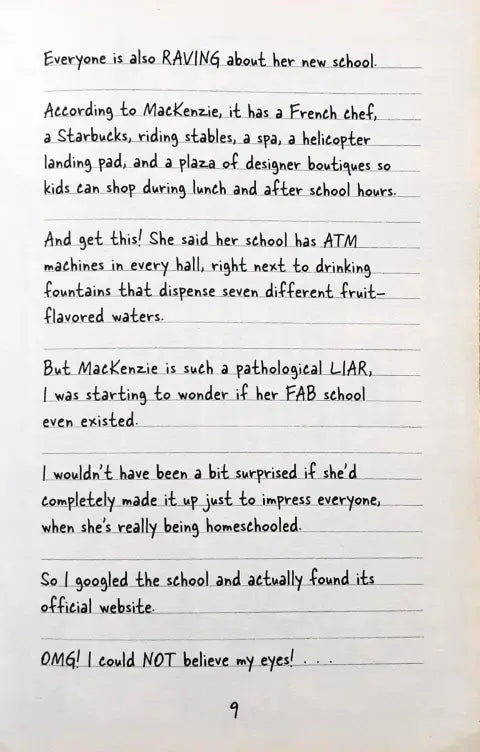 Everyone is also RAVING about her new school.
According to MacKenzie, it has a French chef,
a Starbucks, riding stables, a spa, a helicopter
landing pad, and a plaza of designer boutiques so
kids can shop during lunch and after school hours.
And get this! She said her school has ATM
machines in every hall, right next to drinking
fountains that dispense seven different fruit-
flavored waters.
But MacKenzie is such a pathological LIAR,
I was starting to wonder if her FAB school
even existed.
I wouldn't have been a bit surprised if she'd
completely made it up just to impress everyone,
when she's really being homeschooled.
So I googled the school and actually found its
official website.
OMG! I could NOT believe my eyes! . . .
9